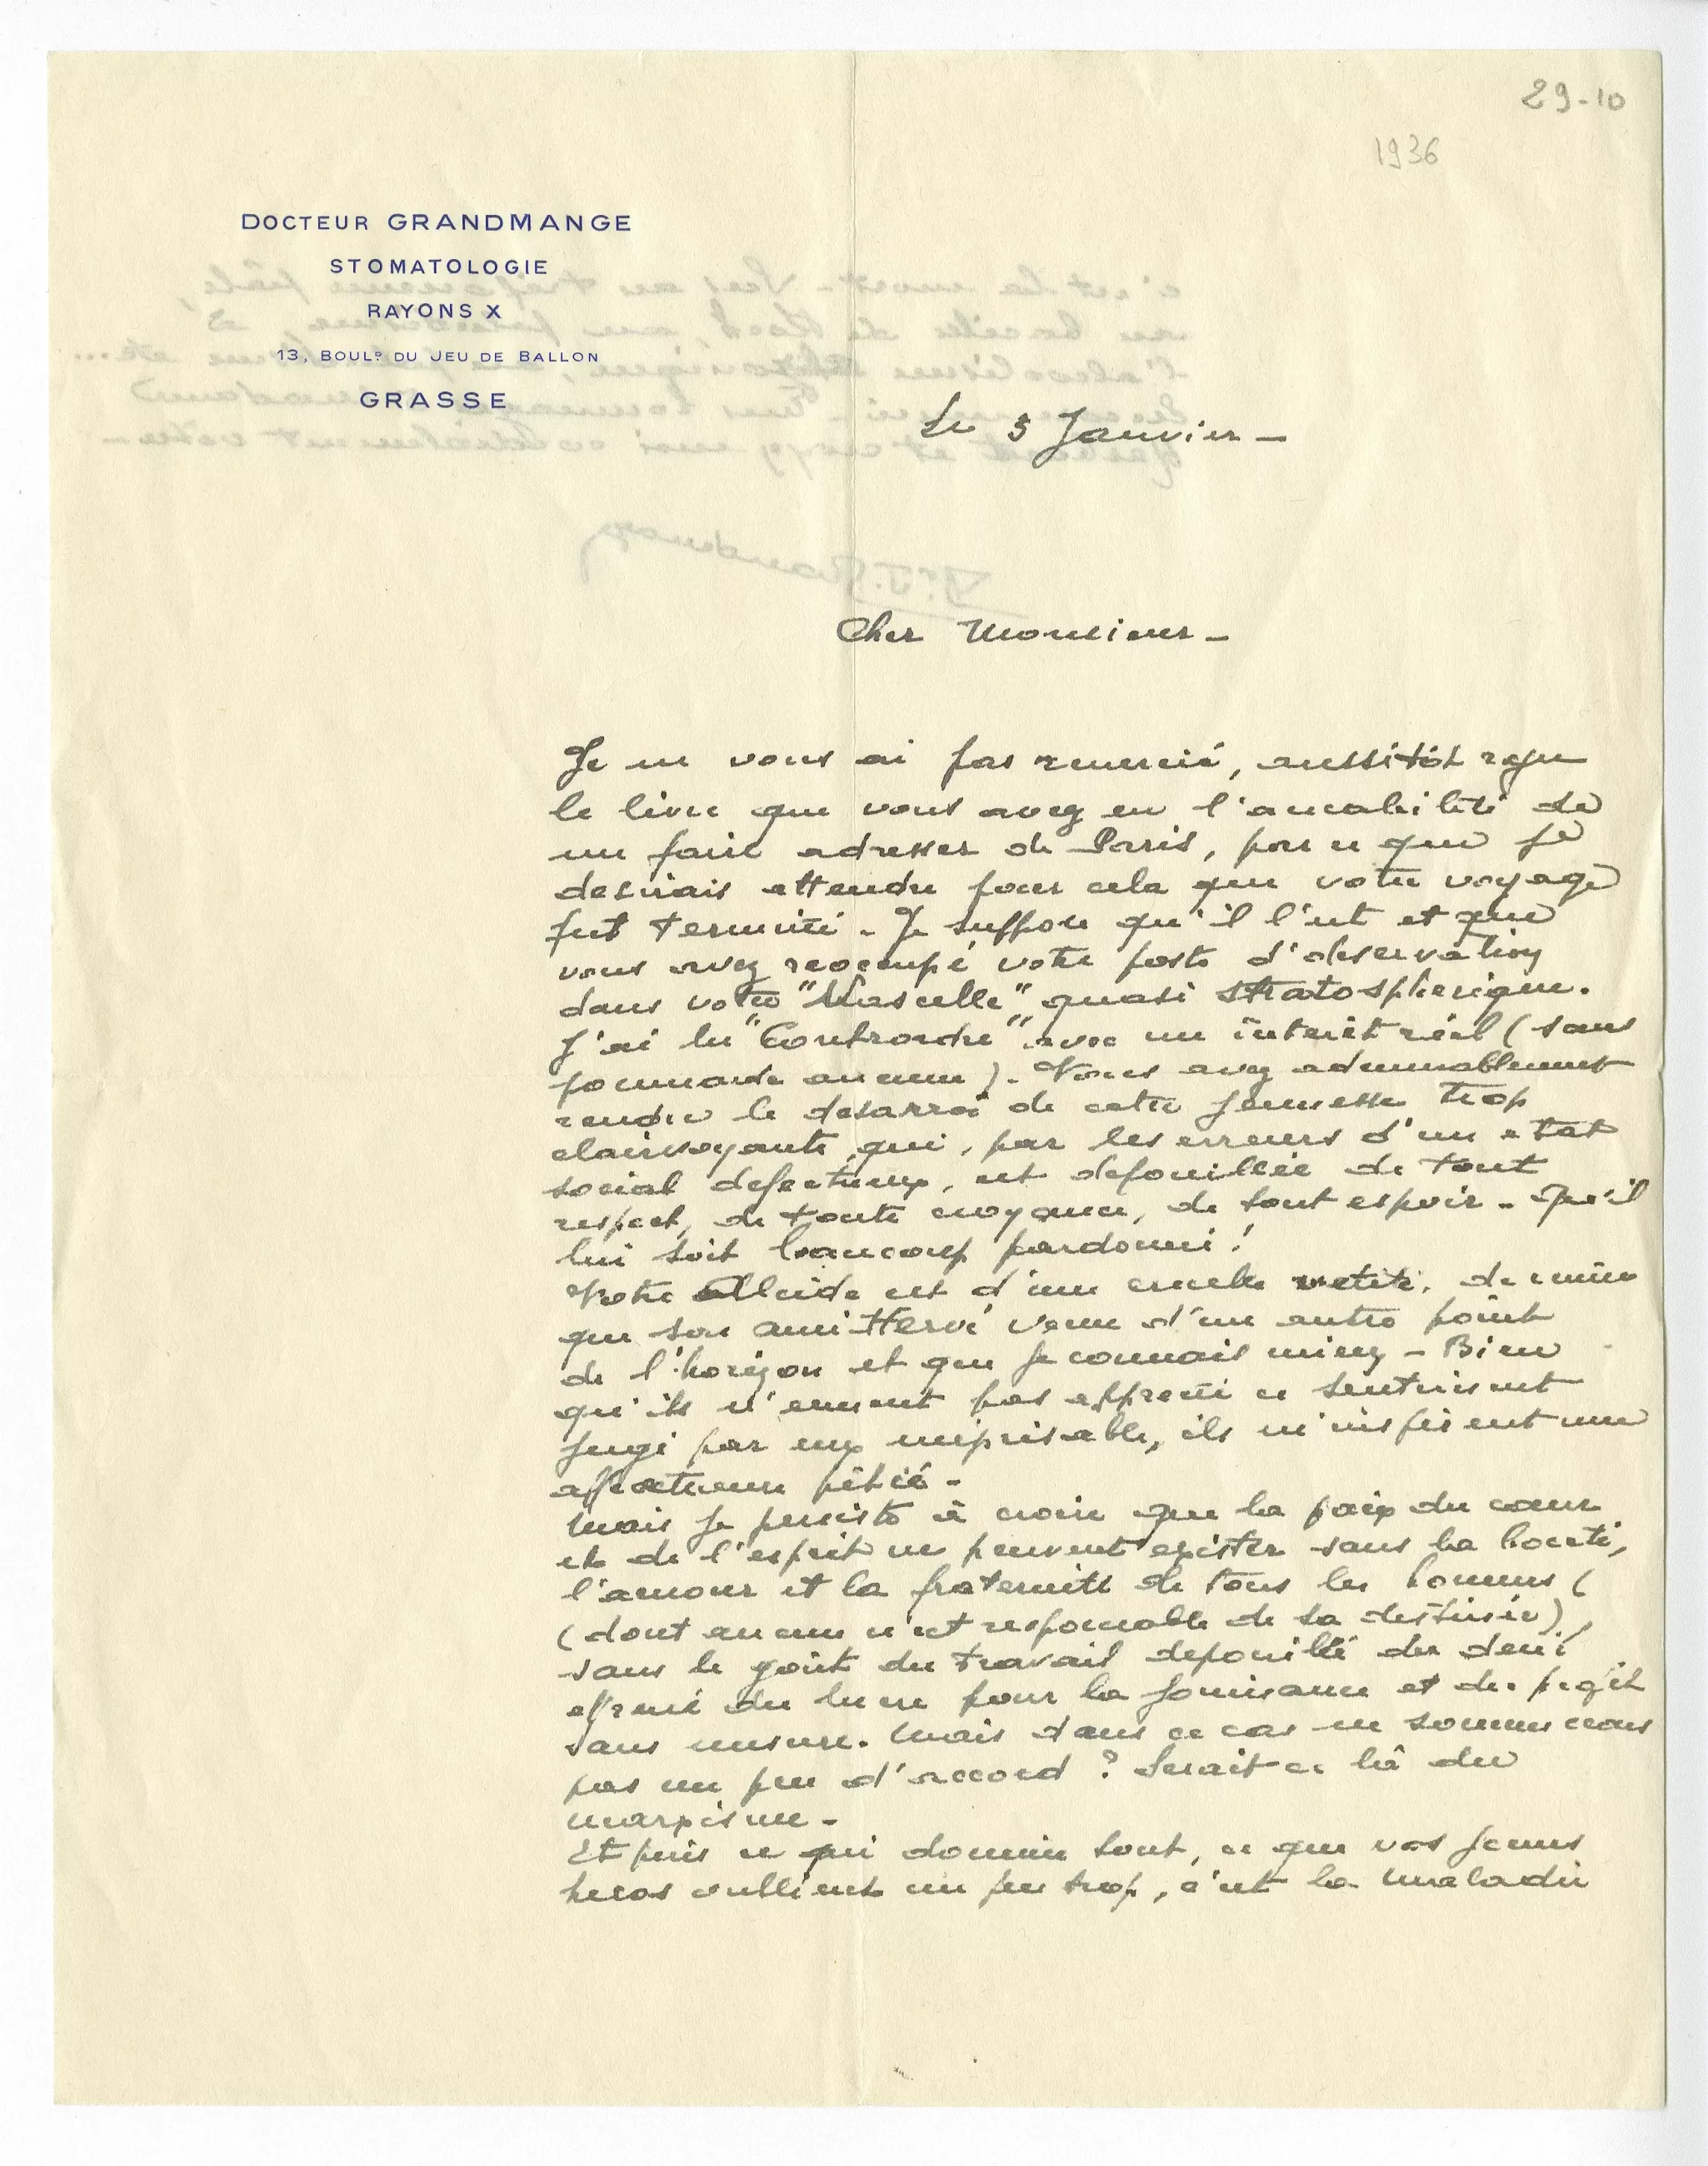 29-10
1936
DOCTEUR GRANDMANGE
STOMATOLOGIE
RAYONS X
13, BOULD DU JEU DE BALLON
GRASSE
Le 5 Janvier -
Cher Monsieur -
Je ne vous ai pas remercié, aussitôt reçu
le livre que vous avez eu l'amabilité de
me faire adresser de Paris, parce que je
desirais attendre pour cela que votre voyage
fut terminé. Je suppose qu'il l'est et que
vous avez reoccupé votre poste d'observation
dans votre "Nascelle" quasi stratospherique.
J'ai lu "Contrordre" avec un intérêt réel (sans
pommade aucune). Vous avez admirablement
rendu le desarroi de cette jeunesse trop
clairvoyante, qui, par les erreurs d'un etat
social defectueux, est depouillée de tout
respect, de toute croyance, de tout espoir - Qu'il
lui soit beaucoup pardonné !
Votre Alcide est d'une cruelle verité, de même
que son ami Hervé venu d'un autre point
de l'horizon et que je connais mieux - Bien
qu'ils n'eussent pas apprecié ce sentiment
jugé par eux méprisable, ils m'inspirent une
affectueuse pitié -
Mais je persiste à croire que la paix du cœur
et de l'esprit ne peuvent exister sans la bonté,
l'amour et la fraternité de tous les hommes (
(dont aucun n'est responsable de sa destinée),
sans le goût du travail depouillé du desir
effrené du lucre pour la jouissance et de profit
sans mesure. Mais dans ce cas ne sommes nous
pas un peu d'accord ? Serait-ce là du
marxisme -
Et puis ce qui domine tout, ce que vos jeunes
heros oublient un peu trop, c'est la maladie
c'est la mort - Vers un trépomème pâle,
un bacille de Koch,
l'alcoolisme
et croyez moi cordialement votre -
Dr J. Grandmange